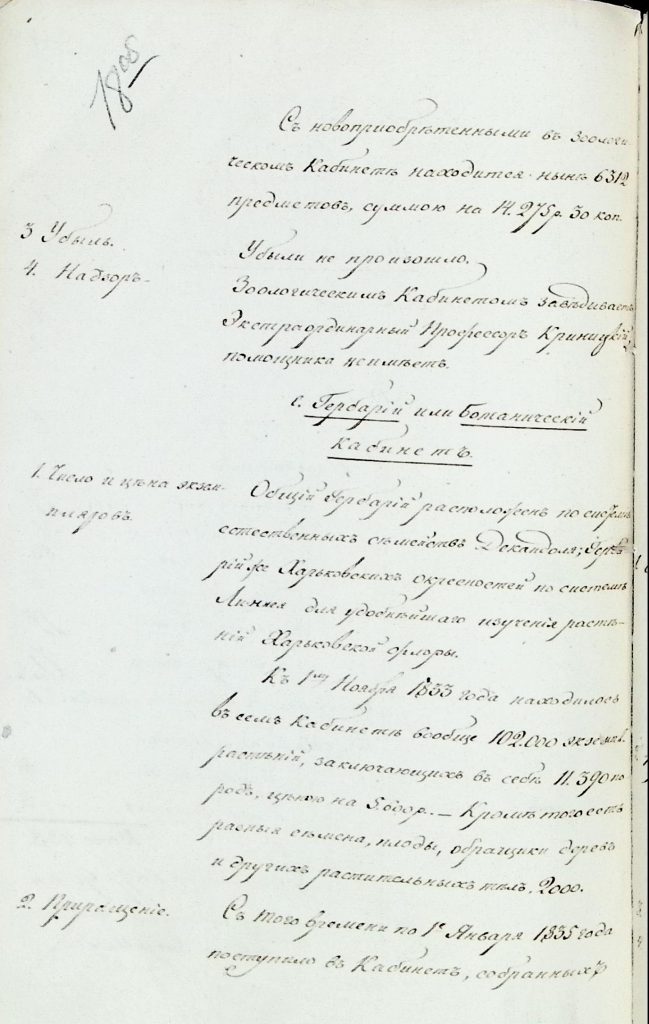 1808
Съ новоприобрѣтенными въ Зоологи-
ческомъ Кабинетѣ находится нынѣ 6312
предметовъ, суммою на 14.275 р. 30 коп.
3 Убыль.
Убыли не произошло.
4. Надзоръ.
Зоологическимъ Кабинетомъ завѣдываетъ
Экстраординарный Профессоръ Криницкій,
помощника неимѣетъ.
е. Гербарій или Ботаническій
Кабинетъ.
1. Число и цѣна экзем-
пляровъ
Общій Гербарій расположенъ по системѣ
естественныхъ сѣмействъ Декандоля; Герба-
рій же Харьковскихъ окресностей по системѣ
Линнея для удобнѣйшаго изученія растѣ-
ній Харьковской флоры.
Къ 1му Ноября 1833 года находилось
въ семъ Кабинетѣ вообще 102.000 экземпл.
растѣній, заключающихъ въ себѣ 11.390 по-
родъ, цѣною на 5.600 р. — Кромѣ того есть
разныя сѣмена, плоды, образчики деревъ
и другихъ растительныхъ тѣлъ 2000.
2. Приращеніе.
Съ того времени по 1е Января 1835 года
поступило въ Кабинетъ, собранныхъ